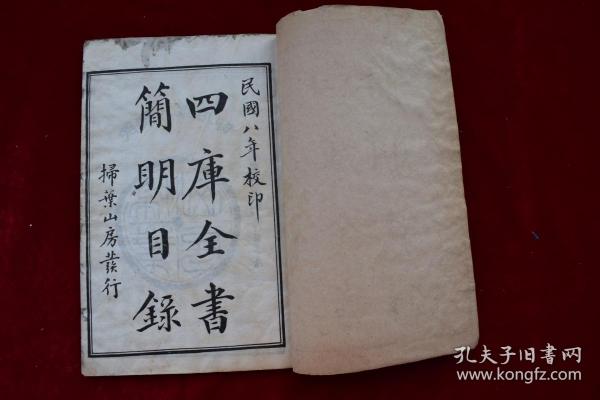 民國八年校印
四庫全書
簡明目錄
掃葉山房發行
孔夫子旧書网
www.kongfz.com